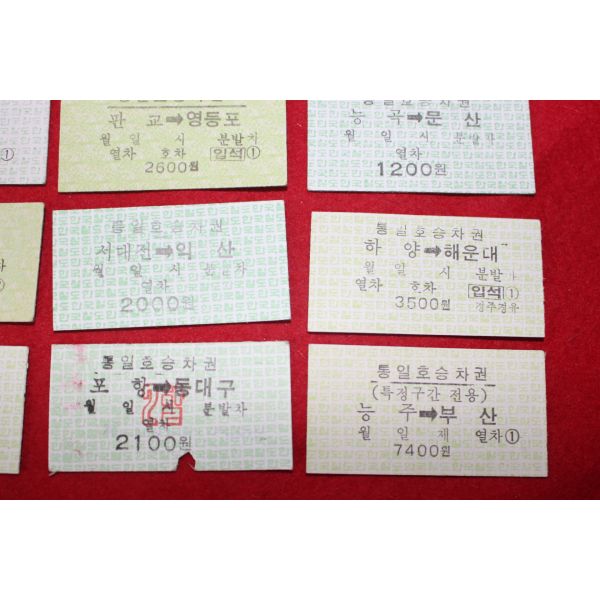 판 교➡영등포
월 일 시 분발차
열차 호차 입석①
2600원
통일호승차권
능 곡➡문 산
월 일 시 분발차
열차
1200원
통일호승차권
서대전➡익 산
월 일 시 분발차
열차
2000원
통일호승차권
하 양➡해운대
월 일 시 분발
열차 호차 입석①
3500원 경주경유
통일호승차권
포 항➡동대구
월 일 시 분발차
열차
2100원
통일호승차권
(특정구간 전용)
능 주➡부 산
월 일 제 열차①
7400원
①